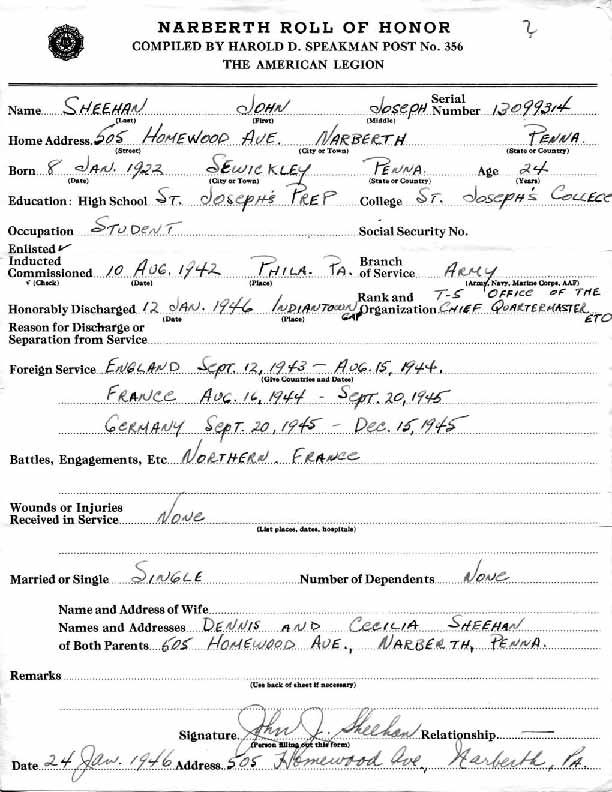 NARBERTH ROLL OF HONOR
COMPILED BY HAROLD D. SPEAKMAN POST No. 356
THE AMERICAN LEGION
?
Name SHEEHAN JOHN JOSEPH Serial Number 13099314
(Last) (First) (Middle)
Home Address 505 HOMEWOOD AVE. NARBERTH PENNA.
(Street) (City or Town) (State or Country)
Born 8 JAN. 1922 SEWICKLEY PENNA. Age 24
(Date) (City or Town) (State or Country) (Years)
Education: High School ST. JOSEPH'S PREP College ST. JOSEPH'S COLLEGE
Occupation STUDENT Social Security No.
Enlisted ✓
Inducted
Commissioned 10 AUG. 1942 PHILA. PA. Branch of Service ARMY
✓ (Check) (Date) (Place) (Army, Navy, Marine Corps, AAF)
Honorably Discharged 12 JAN. 1946 INDIANTOWN GAP Rank and Organization T-5 OFFICE OF THE CHIEF QUARTERMASTER ETO
(Date (Place)
Reason for Discharge or
Separation from Service
Foreign Service ENGLAND SEPT. 12, 1943 - AUG. 15, 1944.
(Give Countries and Dates)
FRANCE AUG. 16, 1944 - SEPT. 20, 1945
GERMANY SEPT. 20, 1945 - DEC. 15, 1945
Battles, Engagements, Etc NORTHERN FRANCE
Wounds or Injuries
Received in Service NONE
(List places, dates, hospitals)
Married or Single SINGLE Number of Dependents NONE
Name and Address of Wife
Names and Addresses DENNIS AND CECILIA SHEEHAN
of Both Parents 605 HOMEWOOD AVE., NARBERTH, PENNA.
Remarks
(Use back of sheet if necessary)
Signature John J. Sheehan Relationship —
(Person filling out this form)
Date 24 Jan. 1946 Address 505 Homewood Ave, Narberth, Pa.